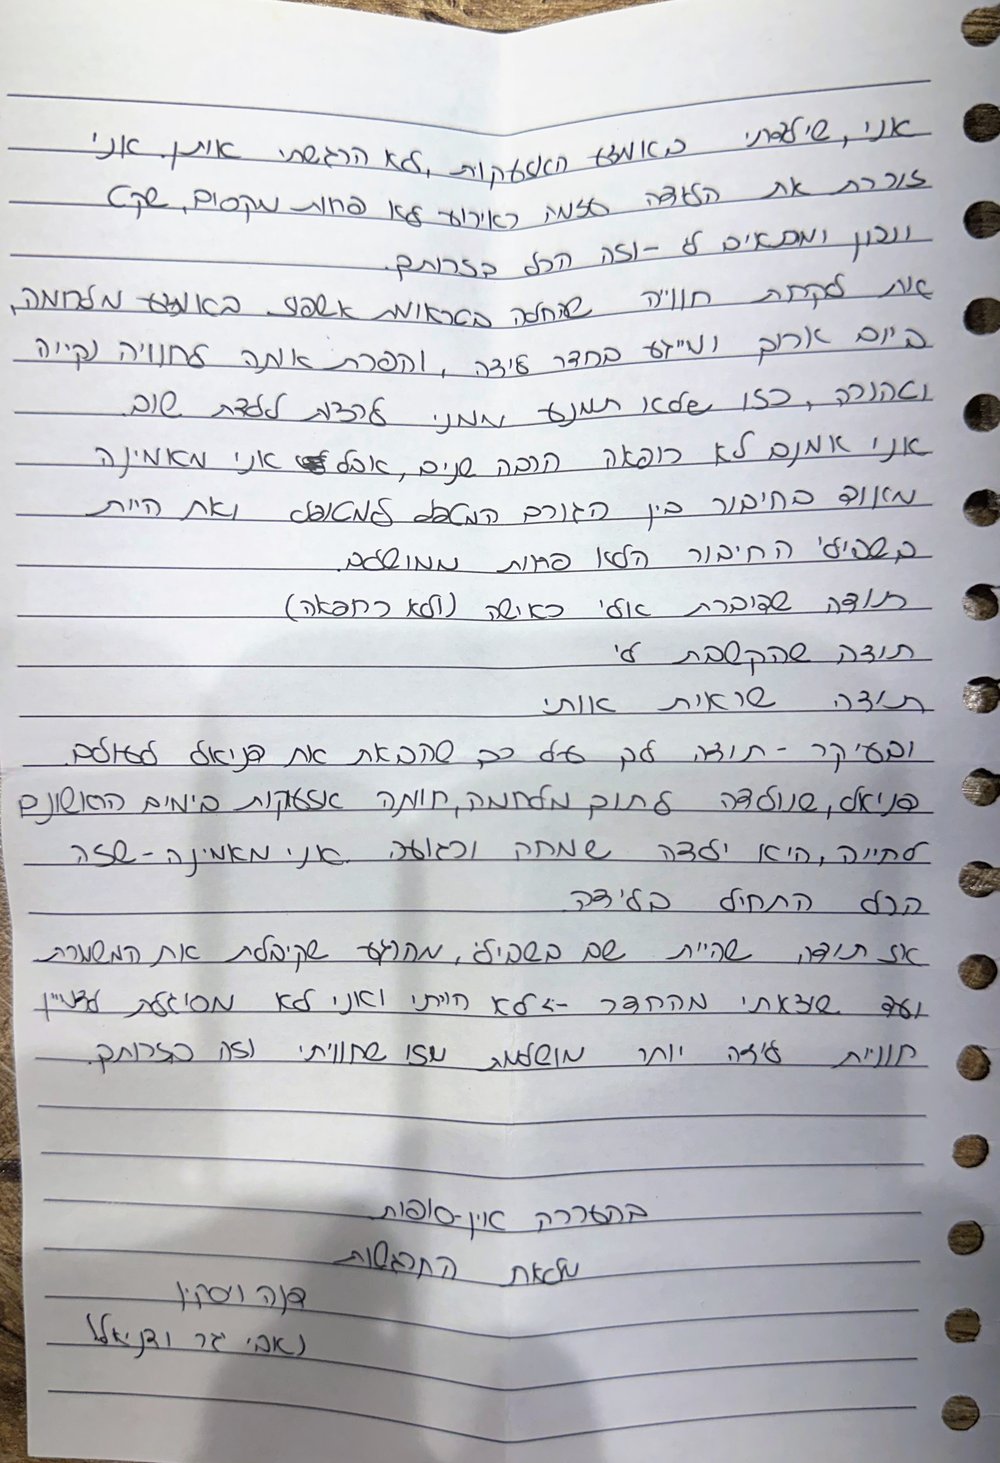 אני, שילדתי באמצע האזעקות, לא הרגשתי אותן. אני
זוכרת את הלידה עצמה כאירוע לא פחות מקסום, שקט
ונכון ומתאים לי - וזה הכל בזכותך.
את לקחת חוויה שהחלה בטראומת אשפוז באמצע מלחמה,
ביום ארוך ומייגע בחדר לידה, והפכת אותה לחוויה נקייה
וטהורה, כזו שלא תמנע ממני לרצות ללדת שוב.
אני אמנם לא רופאה הרבה שנים, אבל אני מאמינה
מאוד בחיבור בין הגורם המטפל למטופל ואת היית
בשבילי החיבור הלא פחות ממושלם.
תודה שדיברת אלי כאישה (ולא כרופאה)
תודה שהקשבת לי
תודה שראית אותי
ובעיקר - תודה לך על כך שהבאת את דניאל לעולם.
דניאל, שנולדה לתוך מלחמה, חוותה אזעקות בימים הראשונים
לחייה, היא ילדה שמחה ורגועה. אני מאמינה - שזה
הכל התחיל בלידה.
אז תודה, שהיית שם בשבילי, מהרגע שקיבלת את המשמרת
ועד שיצאתי מהחדר -> לא הייתי ואני לא מסוגלת לדמיין
חוויית לידה יותר מושלמת מזו שחוויתי וזה בזכותך.
בהערכה אין-סופית
מלאת התרגשות
דנה
ודניאל!